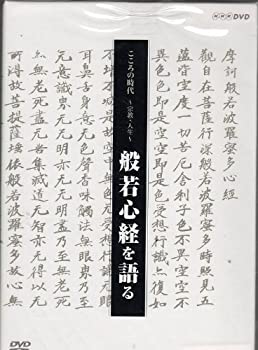 NHK DVD
摩訶般若波羅蜜多心経
觀自在菩薩行深般若波羅蜜多時照見五
蘊皆空度一切苦厄舎利子色不異空空不
異色色即是空空即是色受想行識亦復如
こころの時代
〜宗教・人生〜
般若心経を語る
不増不減是故空中無色無受想行識無眼
耳鼻舌身意無色聲香味觸法無眼界乃至
無意識界無無明亦無無明盡乃至無老死
亦無老死盡無苦集滅道無智亦無得以無
所得故菩提薩埵依般若波羅蜜多故心無
DVD